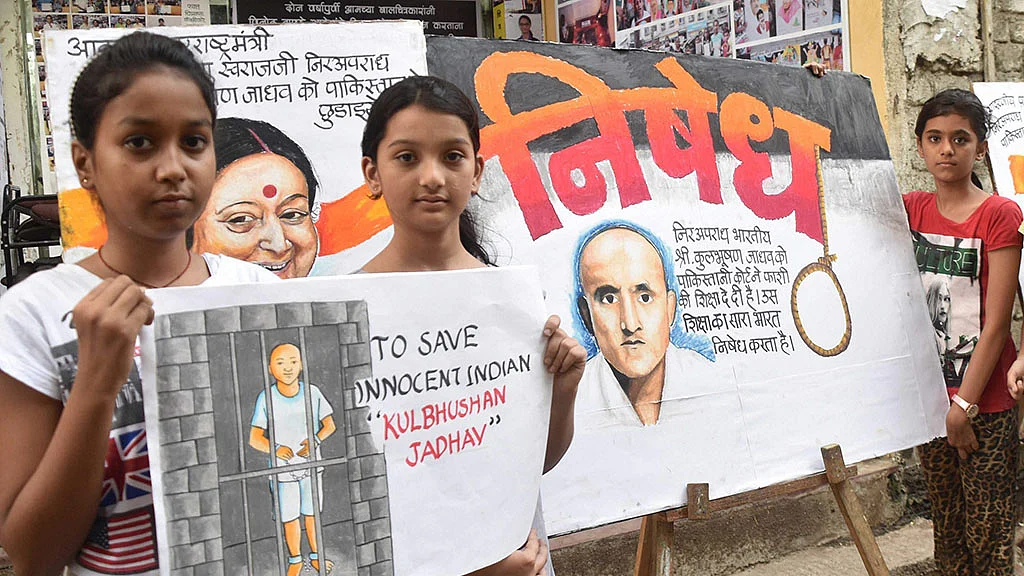 दोन वर्षांपूर्वी आमच्या बालचित्रकारांनी
राष्ट्रमंत्री
स्वराजजी निरअपराध
जाधव को पाकिस्तान
छुडाइए
निषेध
निरअपराध भारतीय
श्री. कुलभूषण जाधव.को
पाकिस्तानी कोर्टने फाशी
की शिक्षा दे दी है। उस
शिक्षा का सारा भारत
निषेध करता है।
TO SAVE
INNOCENT INDIAN
"KULBHUSHAN
JADHAV"